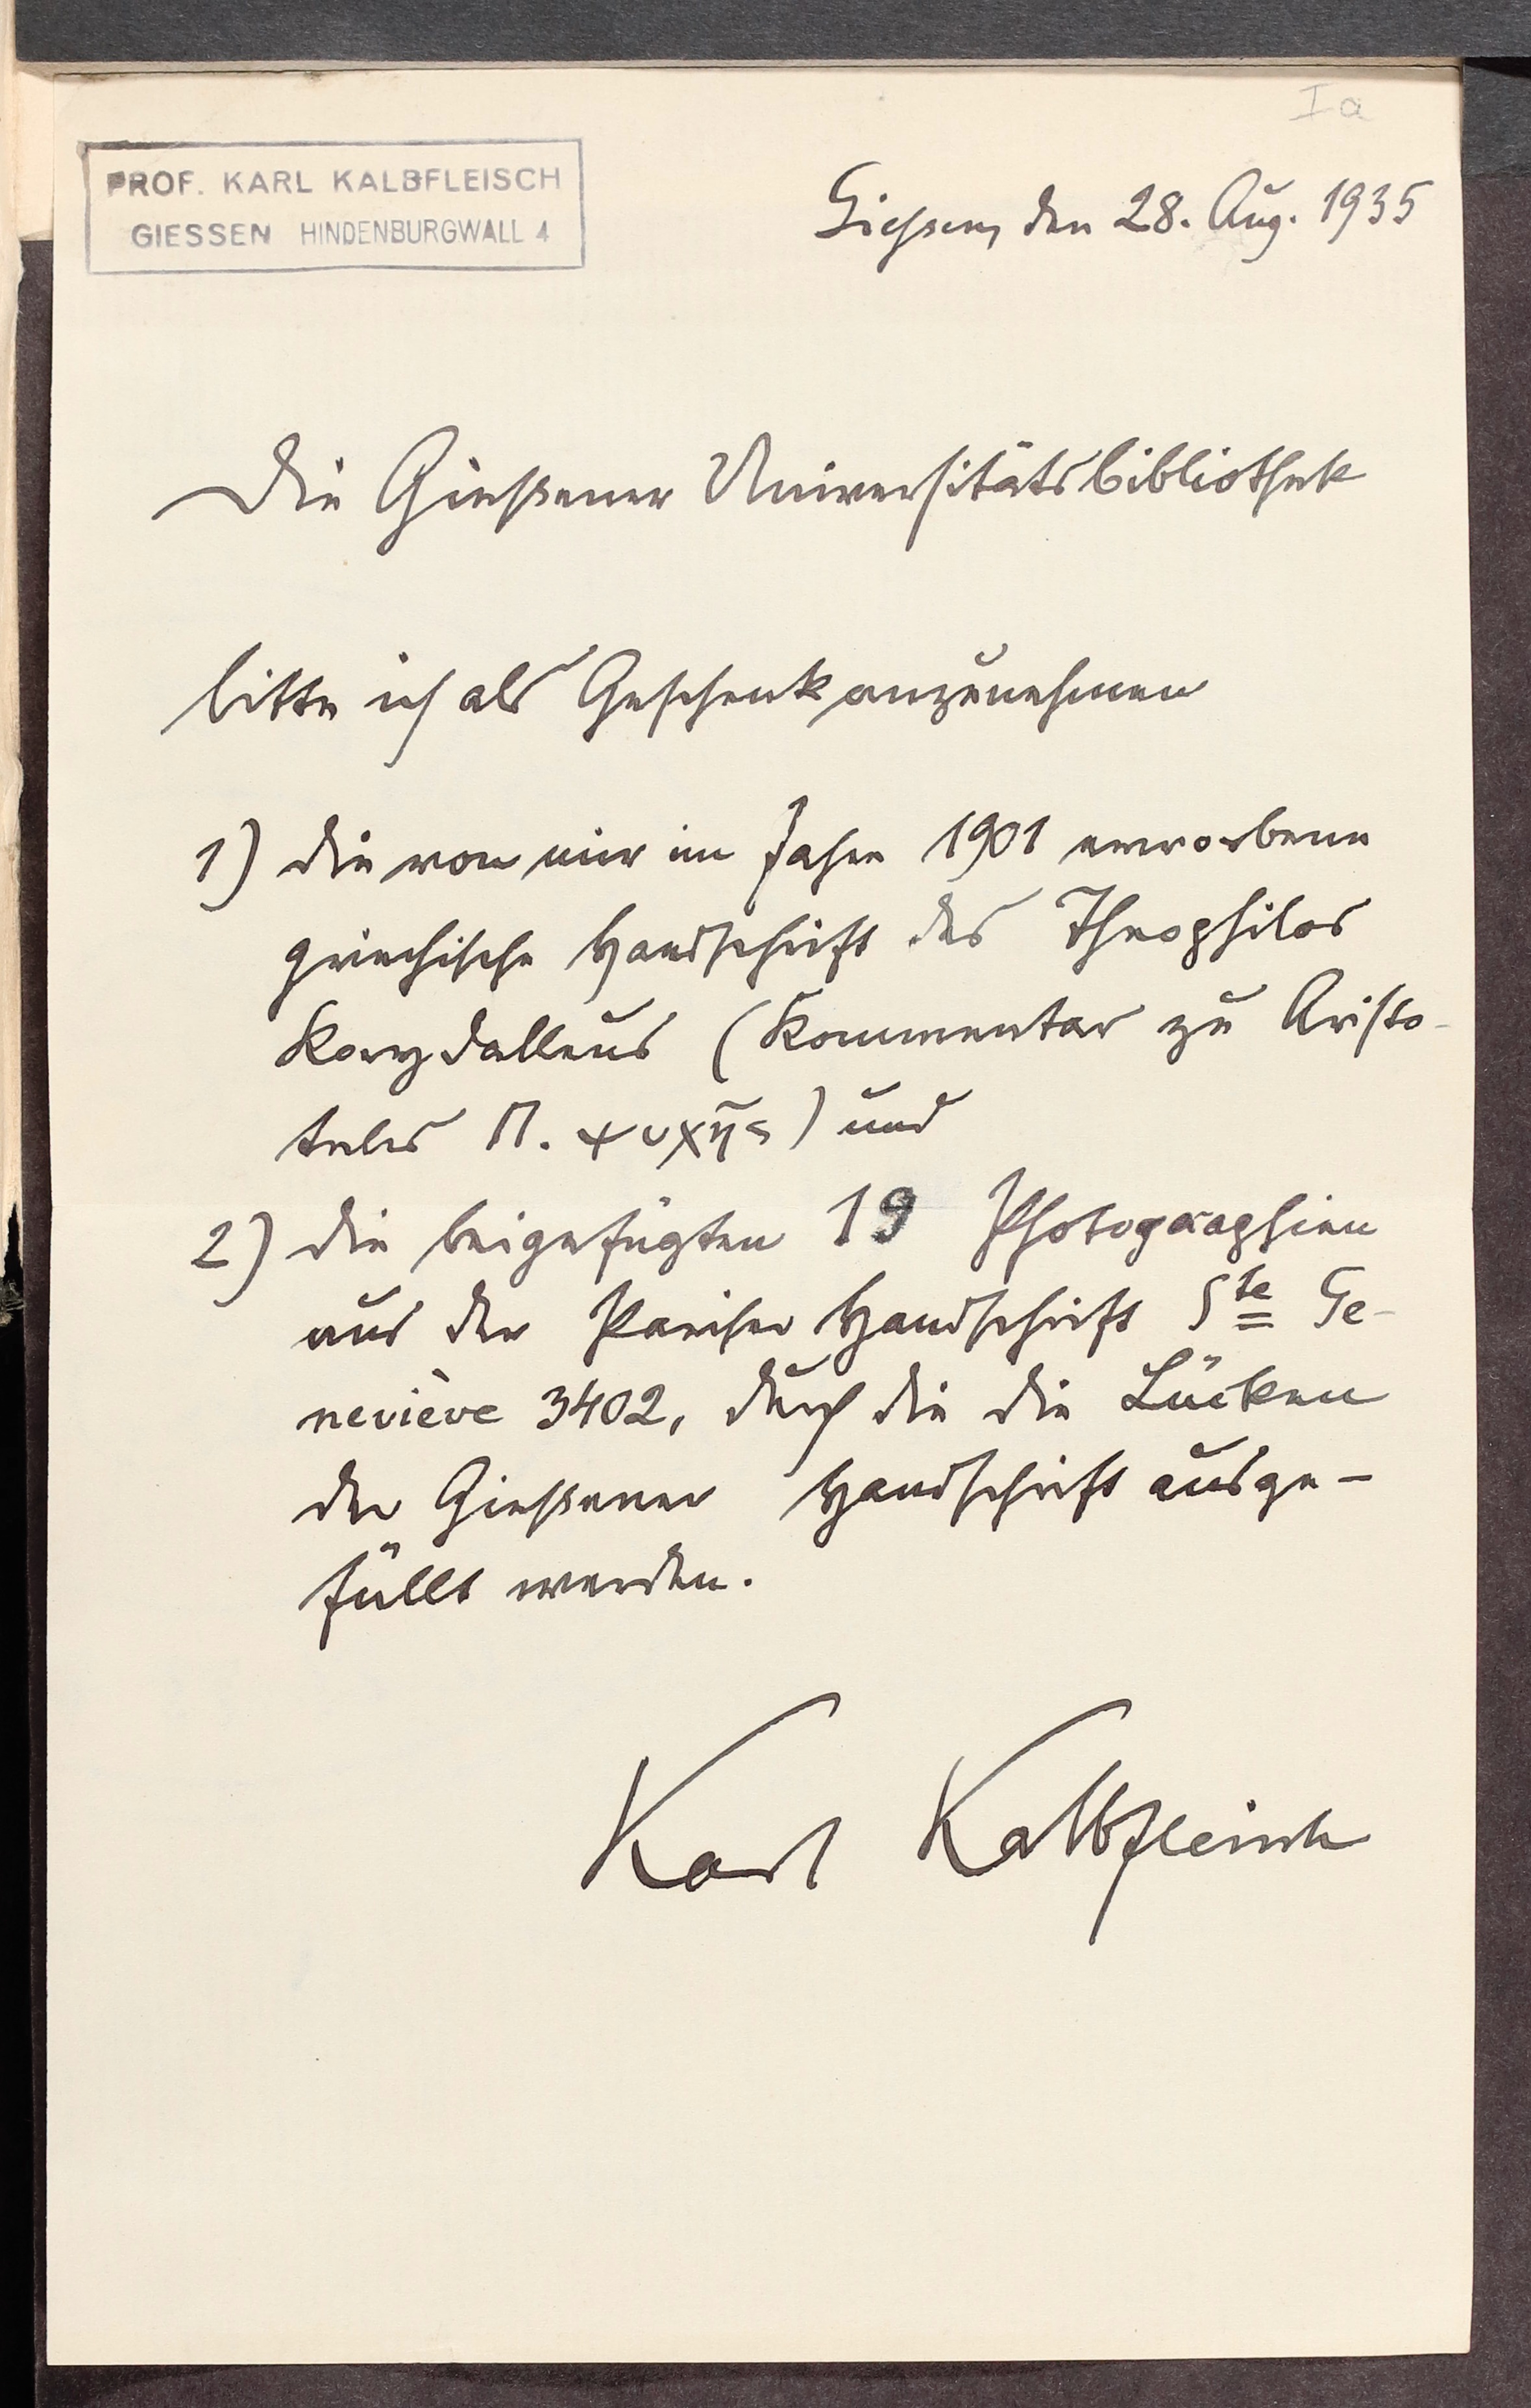 Ia
PROF. KARL KALBFLEISCH
GIESSEN HINDENBURGWALL 4
Giessen, den 28. Aug. 1935
Die Gießener Universitätsbibliothek
bitte ich als Geschenk anzunehmen
1) die von mir im Jahre 1901 erworbene
griechische Handschrift des Theophilos
Korydalleus (Kommentar zu Aristo-
teles Π. ψυχῆς) und
2) die beigefügten 19 Photographien
aus der Pariser Handschrift Ste Ge-
neviève 3402, durch die die Lücken
der Gießener Handschrift ausge-
füllt werden.
Karl Kalbfleisch